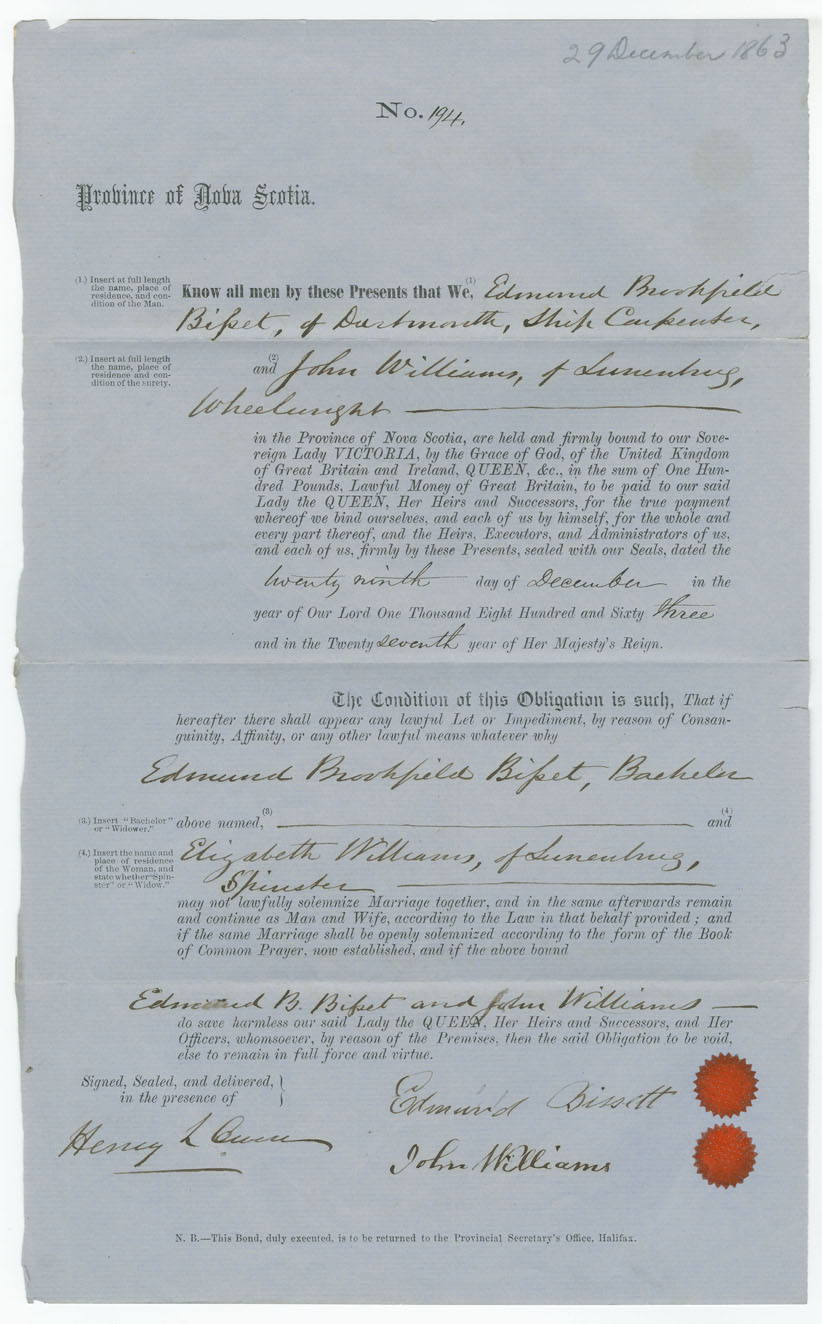 29 December 1863
No. 194.
Province of Nova Scotia.
(1.) Insert at full length
the name, place of
residence, and con-
dition of the Man.
Know all men by these Presents that We, (1) Edmund Brookfield
Bißet, of Dartmouth, Ship Carpenter,
(2.) Insert at full length
the name, place of
residence and con-
dition of the surety.
(2)
and John Williams, of Lunenburg,
Wheelwright
in the Province of Nova Scotia, are held and firmly bound to our Sove-
reign Lady VICTORIA, by the Grace of God, of the United Kingdom
of Great Britain and Ireland, QUEEN, &c., in the sum of One Hun-
dred Pounds, Lawful Money of Great Britain, to be paid to our said
Lady the QUEEN, Her Heirs and Successors, for the true payment
whereof we bind ourselves, and each of us by himself, for the whole and
every part thereof, and the Heirs, Executors, and Administrators of us,
and each of us, firmly by these Presents, sealed with our Seals, dated the
twenty ninth day of December in the
year of Our Lord One Thousand Eight Hundred and Sixty three
and in the Twenty seventh year of Her Majesty's Reign.
The Condition of this Obligation is such, That if
hereafter there shall appear any lawful Let or Impediment, by reason of Consan-
guinity, Affinity, or any other lawful means whatever why
Edmund Brookfield Bißet, Bachelor
(3.) Insert "Bachelor"
or "Widower."
above named, (3) (4) and
(4.) Insert the name and
place of residence
of the Woman, and
state whether "Spin-
ster" or "Widow."
Elizabeth Williams, of Lunenburg,
Spinster
may not lawfully solemnize Marriage together, and in the same afterwards remain
and continue as Man and Wife, according to the Law in that behalf provided; and
if the same Marriage shall be openly solemnized according to the form of the Book
of Common Prayer, now established, and if the above bound
Edmund B. Bißet and John Williams
do save harmless our said Lady the QUEEN, Her Heirs and Successors, and Her
Officers, whomsoever, by reason of the Premises, then the said Obligation to be void,
else to remain in full force and virtue.
Signed, Sealed, and delivered,
in the presence of
Edmund Bissett
Henry L
John Williams
N. B.—This Bond, duly executed, is to be returned to the Provincial Secretary's Office, Halifax.